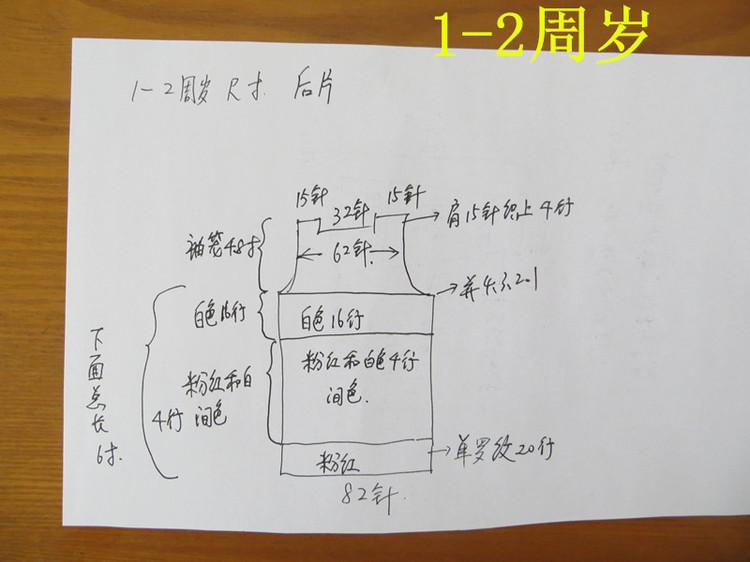 1-2周岁
1-2周岁尺寸 后片
15针
15针
32针
肩15针织上4行
袖笼4.8寸
62针
并4.3.2.1
白色16行
白色16行
粉红和白色4行
间色.
粉红和白
4行间色
下面总长6寸.
粉红
单罗纹20行
82针.